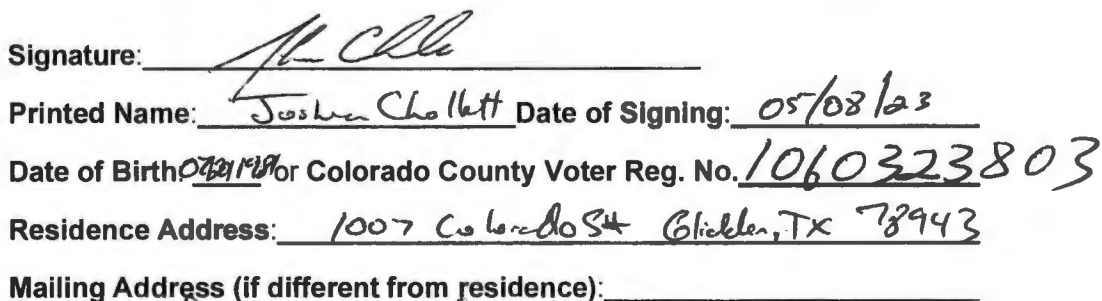 Signature:
Printed Name: Joshua Chollett Date of Signing: 05/08/23
Date of Birth: or Colorado County Voter Reg. No. 1060323803
Residence Address: 1007 Colorado St Glidden, TX 78943
Mailing Address (if different from residence):